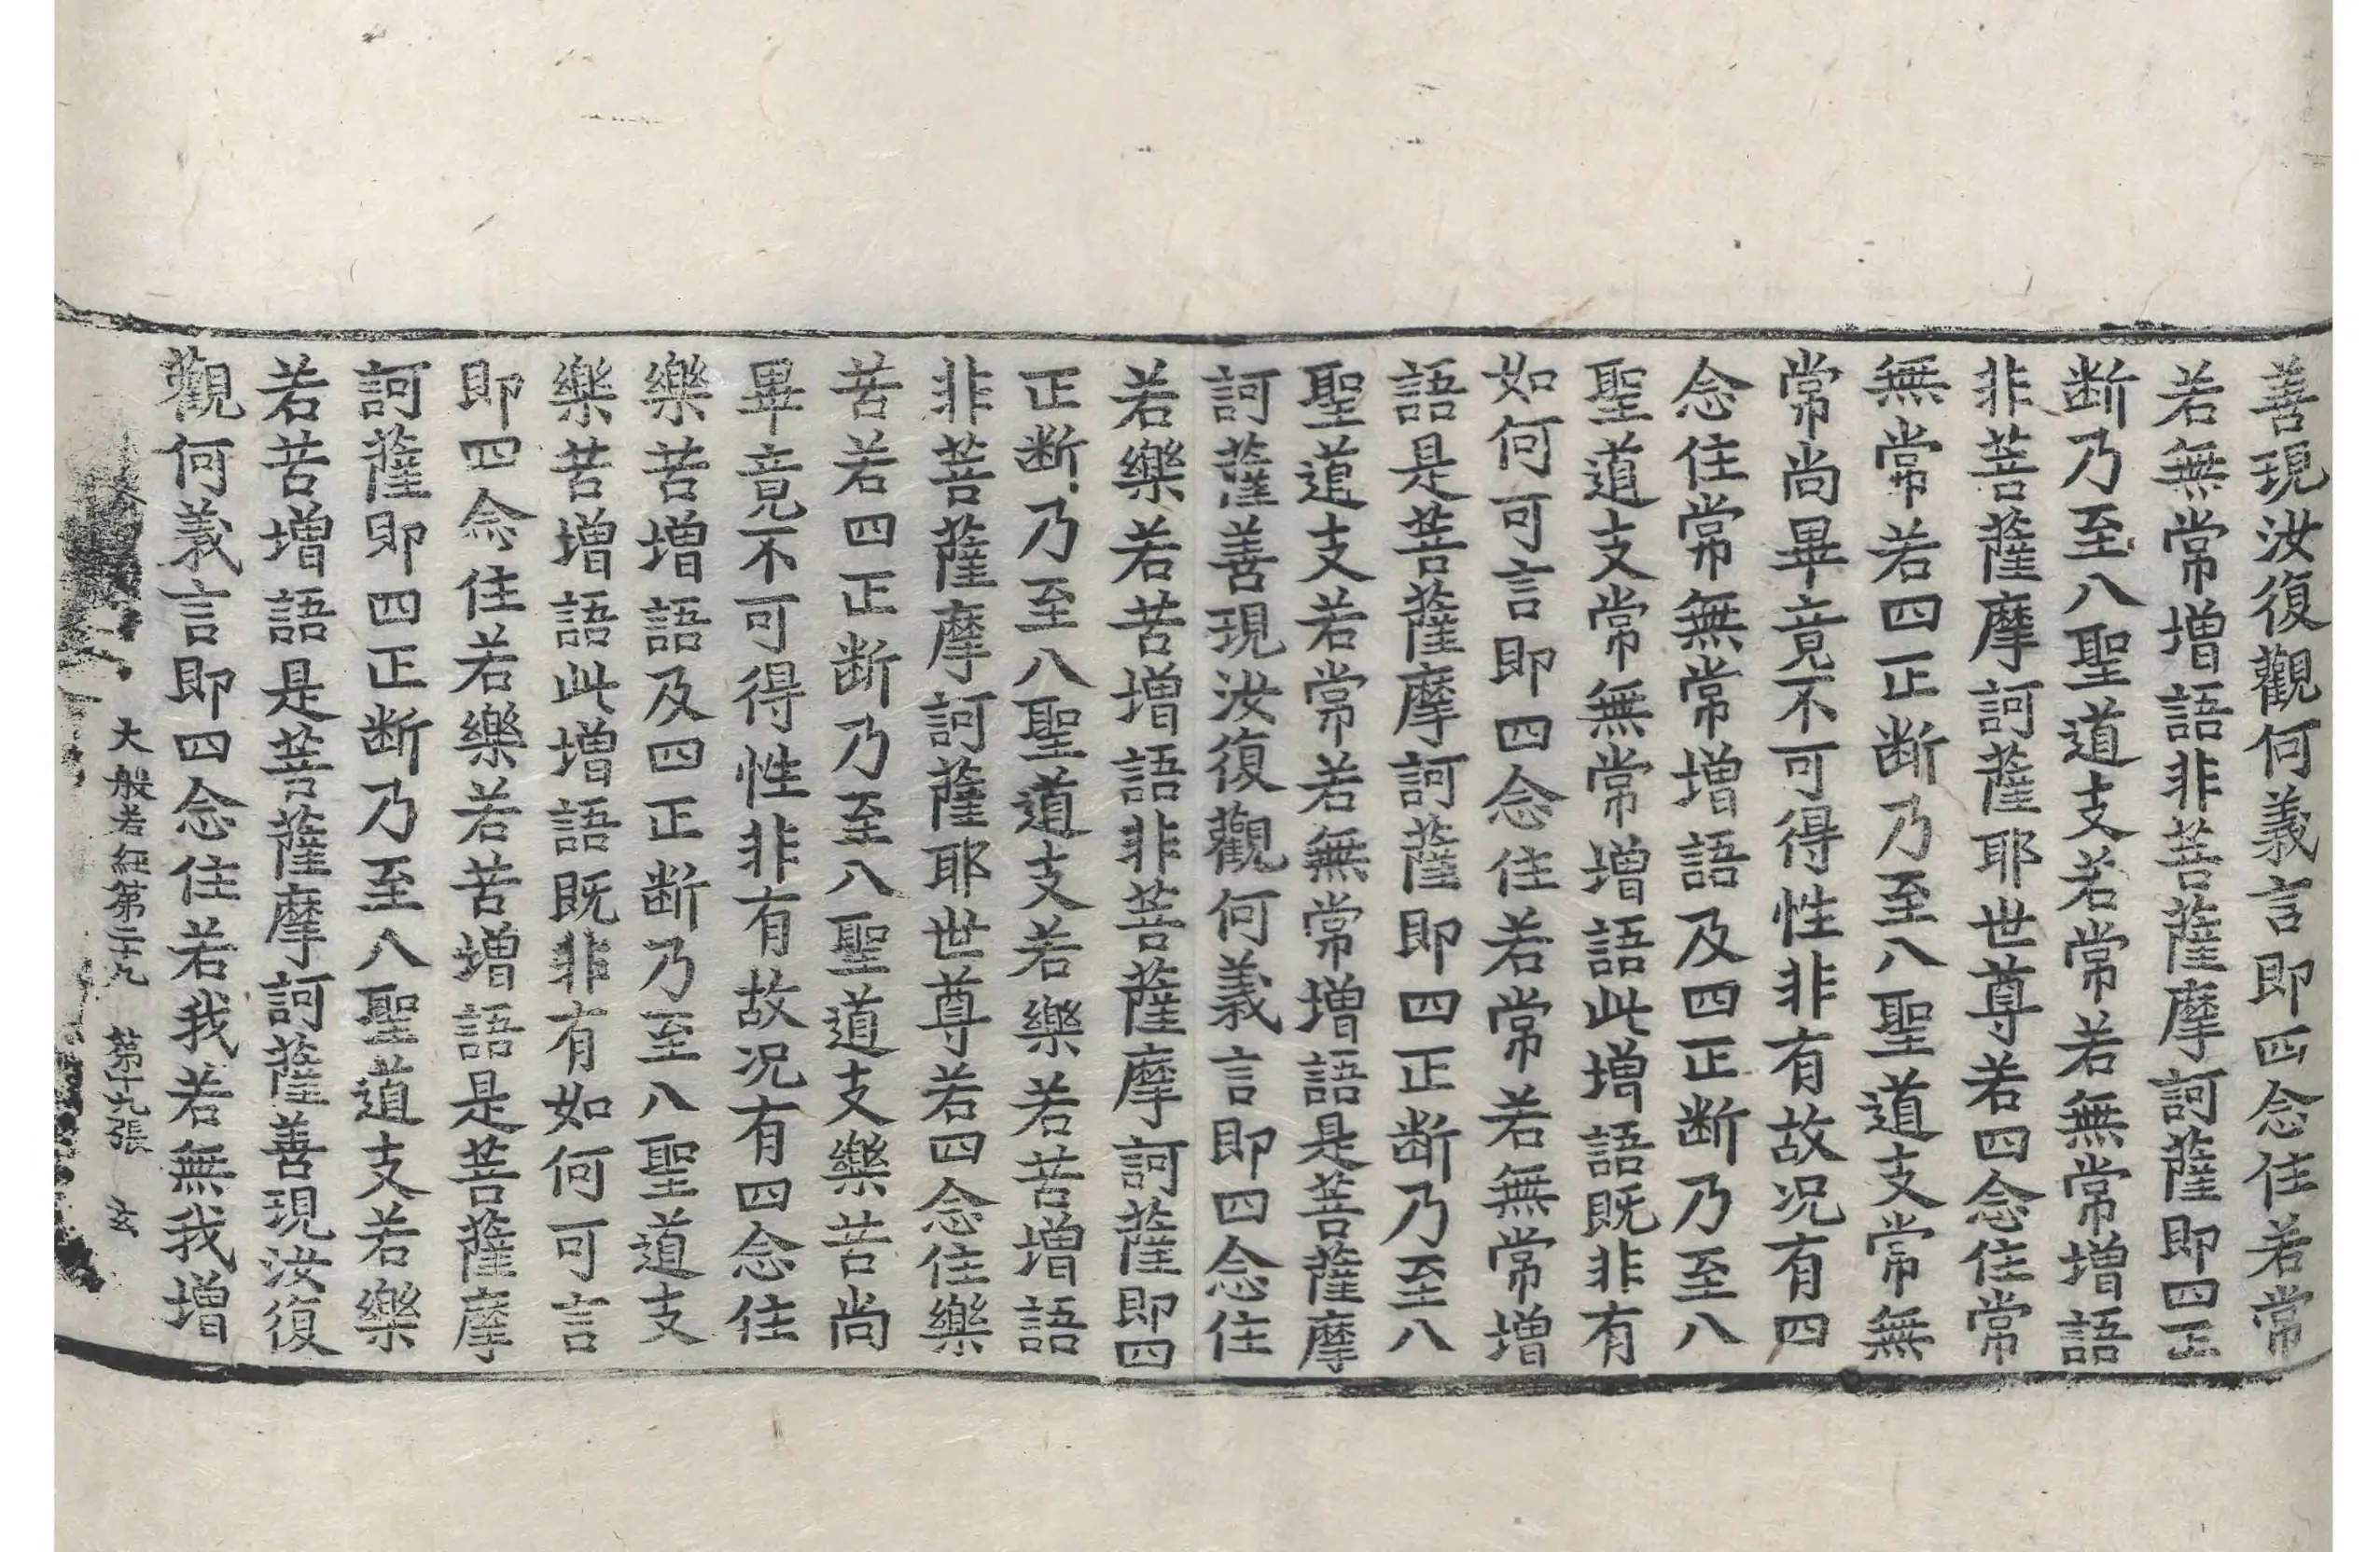 善現汝復觀何義言即四念住若常
若無常增語非菩薩摩訶薩即四正
断乃至八聖道支若常若無常增語
非菩薩摩訶薩耶世尊若四念住常
無常若四正断乃至八聖道支常無
常尚畢竟不可得性非有故况有四
念住常無常增語及四正断乃至八
聖道支常無常增語此增語既非有
如何可言即四念住若常若無常增
語是菩薩摩訶薩即四正断乃至八
聖道支若常若無常增語是菩薩摩
訶薩善現汝復觀何義言即四念住
若樂若苦增語非菩薩摩訶薩即四
正断乃至八聖道支若樂若苦增語
非菩薩摩訶薩耶世尊若四念住樂
苦若四正断乃至八聖道支樂苦尚
畢竟不可得性非有故况有四念住
樂苦增語及四正断乃至八聖道支
樂苦增語此增語既非有如何可言
即四念住若樂若苦增語是菩薩摩
訶薩即四正断乃至八聖道支若樂
若苦增語是菩薩摩訶薩善現汝復
觀何義言即四念住若我若無我增
大般若経第二十九 第十九張 玄